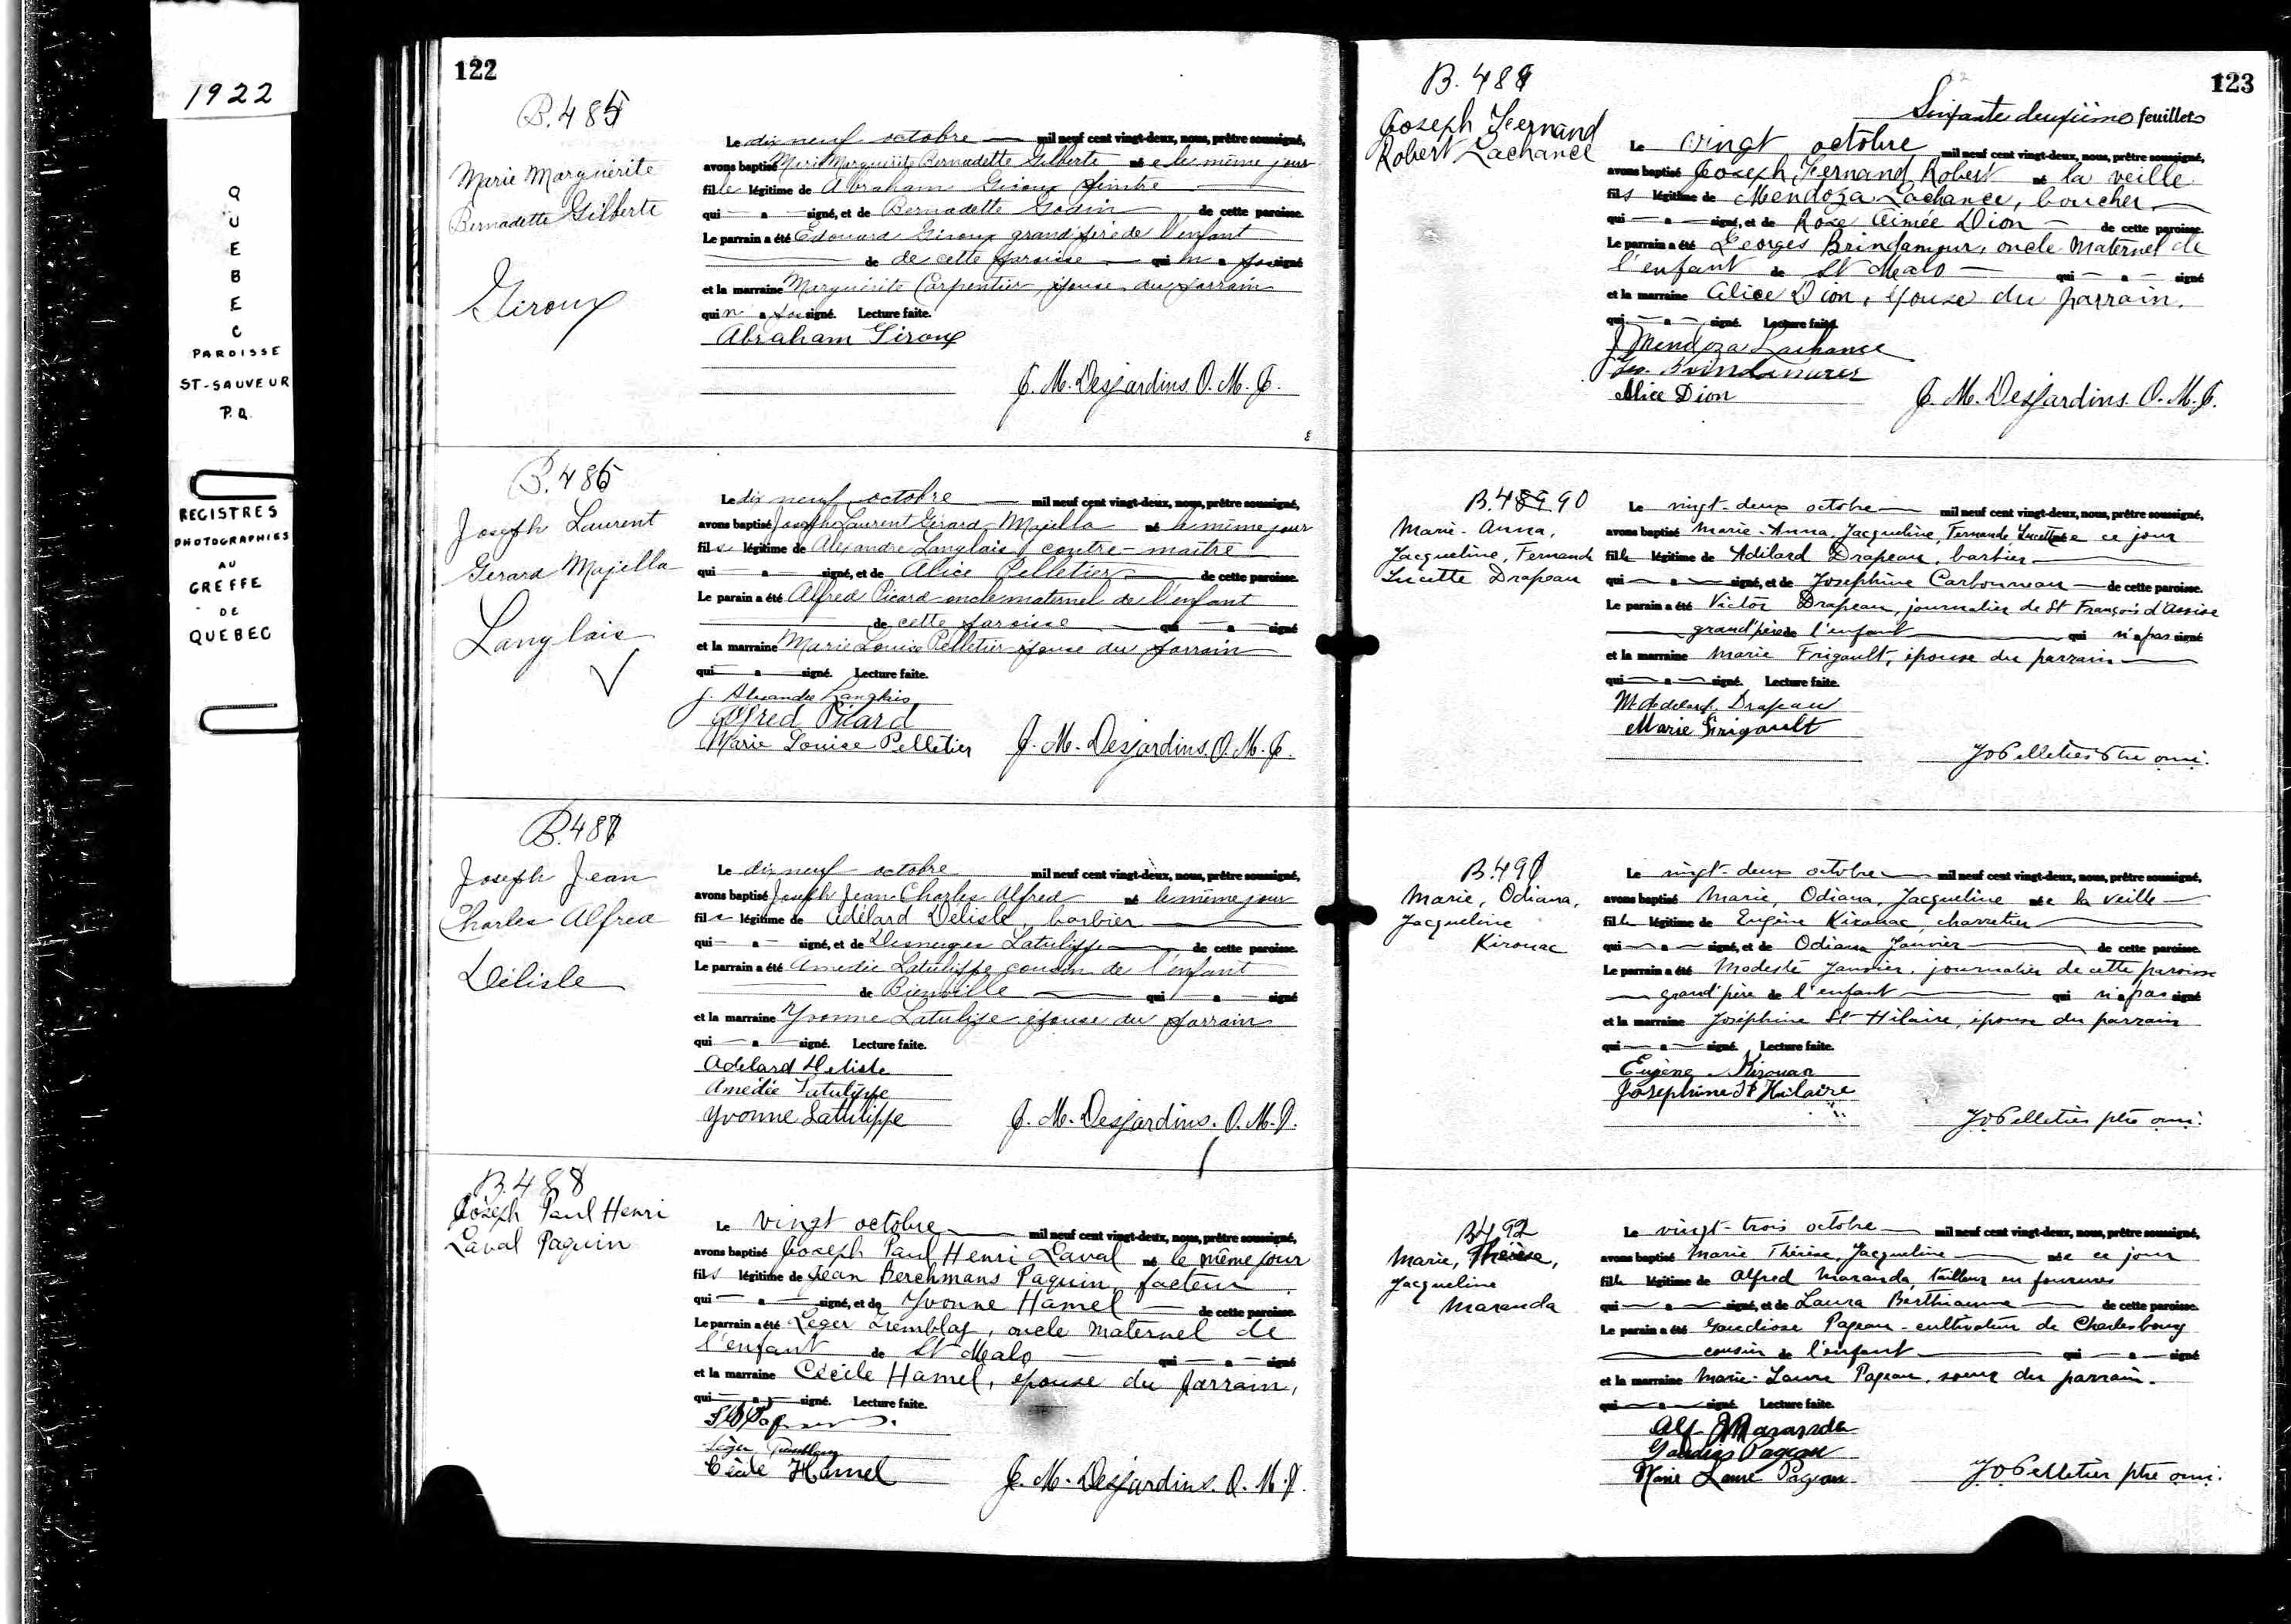 1922
QUEBEC
PAROISSE
ST-SAUVEUR
P.Q.
REGISTRES
PHOTOGRAPHIES
AU
GREFFE
DE
QUEBEC
122
B.485
Marie Marguerite
Bernadette Gilberte
Giroux
Le dix neuf octobre — mil neuf cent vingt-deux, nous, prêtre soussigné,
avons baptisé Marie Marguerite Bernadette Gilberte née le même jour
fille légitime de Abraham Giroux peintre
qui — a — signé, et de Bernadette Godin — de cette paroisse.
Le parrain a été Edouard Giroux grand'père de l'enfant
de de cette paroisse — qui n'a pas signé
et la marraine Marguerite Carpentier épouse du parrain
qui n'a pas signé. Lecture faite.
Abraham Giroux
J. M. Desjardins. O. M. J.
B.486
Joseph Laurent
Gerard Majella
Langlais
Le dix neuf octobre — mil neuf cent vingt-deux, nous, prêtre soussigné,
avons baptisé Joseph Laurent Gérard Majella né le même jour
fils légitime de Alexandre Langlais, contre-maitre
qui — a — signé, et de Alice Pelletier — de cette paroisse.
Le parain a été Alfred Picard oncle maternel de l'enfant
de cette paroisse — qui — a — signé
et la marraine Marie Louise Pelletier épouse du parrain
qui — a — signé. Lecture faite.
J. Alexandre Langlais
Alfred Picard
Marie Louise Pelletier
J. M. Desjardins. O. M. J.
B.487
Joseph Jean
Charles Alfred
Délisle
Le dix neuf octobre mil neuf cent vingt-deux, nous, prêtre soussigné,
avons baptisé Joseph Jean Charles Alfred né le même jour
fils légitime de Adélard Délisle, barbier
qui — a — signé, et de Desneiges Latulippe — de cette paroisse.
Le parrain a été Amedée Latulippe cousin de l'enfant
de Bienville — qui — a — signé
et la marraine Yvonne Latulipe épouse du parrain
qui — a — signé. Lecture faite.
Adelard Delisle
Amédée Latulippe
Yvonne Latulippe
J. M. Desjardins. O. M. J.
B.488
Joseph Paul Henri
Laval Paquin
Le vingt octobre — mil neuf cent vingt-deux, nous, prêtre soussigné,
avons baptisé Joseph Paul Henri Laval né le même jour
fils légitime de Jean Berchmans Paquin, facteur
qui — a — signé, et de Yvonne Hamel — de cette paroisse.
Le parrain a été Leger Tremblay, oncle maternel de
l'enfant de St Malo — qui — a — signé
et la marraine Cécile Hamel, épouse du parrain,
qui — a — signé. Lecture faite.
Léger Tremblay
Cécile Hamel
J. M. Desjardins. O. M. J.
123
Soixante deuxième feuillets
B.489
Joseph Fernand
Robert Lachance
Le vingt octobre mil neuf cent vingt-deux, nous, prêtre soussigné,
avons baptisé Joseph, Fernand, Robert né la veille
fils légitime de Mendoza Lachance, boucher —
qui — a — signé, et de Rose Aimée Dion — de cette paroisse.
Le parrain a été Georges Brindamour, oncle maternel de
l'enfant de St Malo — qui — a — signé
et la marraine Alice Dion, épouse du parrain.
qui — a — signé. Lecture faite.
J Mendoza Lachance
Geo. Brindamour
Alice Dion
J. M. Desjardins. O. M. J.
B.490
Marie-Anna,
Jacqueline, Fernande
Lucette Drapeau
Le vingt-deux octobre — mil neuf cent vingt-deux, nous, prêtre soussigné,
avons baptisé Marie-Anna, Jacqueline, Fernande, Lucette née ce jour
fille légitime de Adélard Drapeau, barbier —
qui — a — signé, et de Joséphine Carbonneau — de cette paroisse.
Le parain a été Victor Drapeau, journalier de St François d'Assise
— grand'père de l'enfant — qui n'a pas signé
et la marraine Marie Frigault, épouse du parrain —
qui — a — signé. Lecture faite.
Drapeau
Marie Frigault
JO Pelletier Ptre omi.
B.491
Marie, Odiana,
Jacqueline
Kirouac
Le vingt-deux octobre — mil neuf cent vingt-deux, nous, prêtre soussigné,
avons baptisé Marie, Odiana, Jacqueline née la veille —
fille légitime de Eugène Kirouac, charretier —
qui — a — signé, et de Odiana Janvier — de cette paroisse.
Le parrain a été Modeste Janvier, journalier de cette paroisse
— grand'père de l'enfant — qui n'a pas signé
et la marraine Joséphine St-Hilaire, épouse du parrain
qui — a — signé. Lecture faite.
Eugène Kirouac
Josephine St Hilaire
JO Pelletier ptre omi.
B492
Marie, Thérèse,
Jacqueline
Maranda
Le vingt-trois octobre — mil neuf cent vingt-deux, nous, prêtre soussigné,
avons baptisé Marie Thérèse, Jacqueline — née ce jour
fille légitime de Alfred Maranda, tailleur en fourrures
qui — a — signé, et de Laura Berthiaume — de cette paroisse.
Le parain a été Gaudiose Pageau - cultivateur de Charlesbourg
— cousin de l'enfant — qui — a — signé
et la marraine Marie-Laure Pageau, soeur du parrain.
qui — a — signé. Lecture faite.
Alf Maranda
Gaudios Pageau
Marie Laure Pageau
JO Pelletier ptre omi.